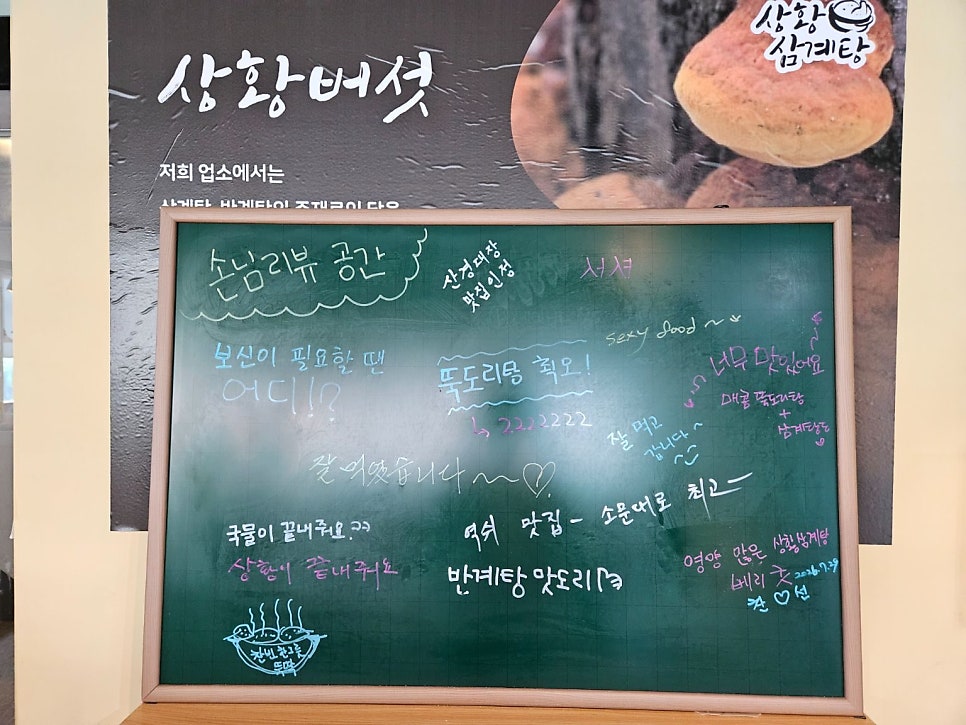 상황버섯
상황
삼계탕
저희 업소에서는
삼계탕, 반계탕의 주재료인 닭은
손님리뷰 공간
산경대장
맛집인정
서셔
sexy food ~
보신이 필요할 땐
어디!!?
뚝도리탕 최오!
↳ 2222222
너무 맛있어요
매콤 뚝도리탕
+
삼계탕도
잘 먹고
갑니다~
잘 먹었습니다~~♡
국물이 끝내줘요.ㅋㅋ
상황이 끝내줘요
역쉬 맛집 - 소문대로 최고-
반계탕 맛도리
영양 많은 상황삼계탕
베리 굿 2026.7.29
찬♡선
한그릇
뚝딱